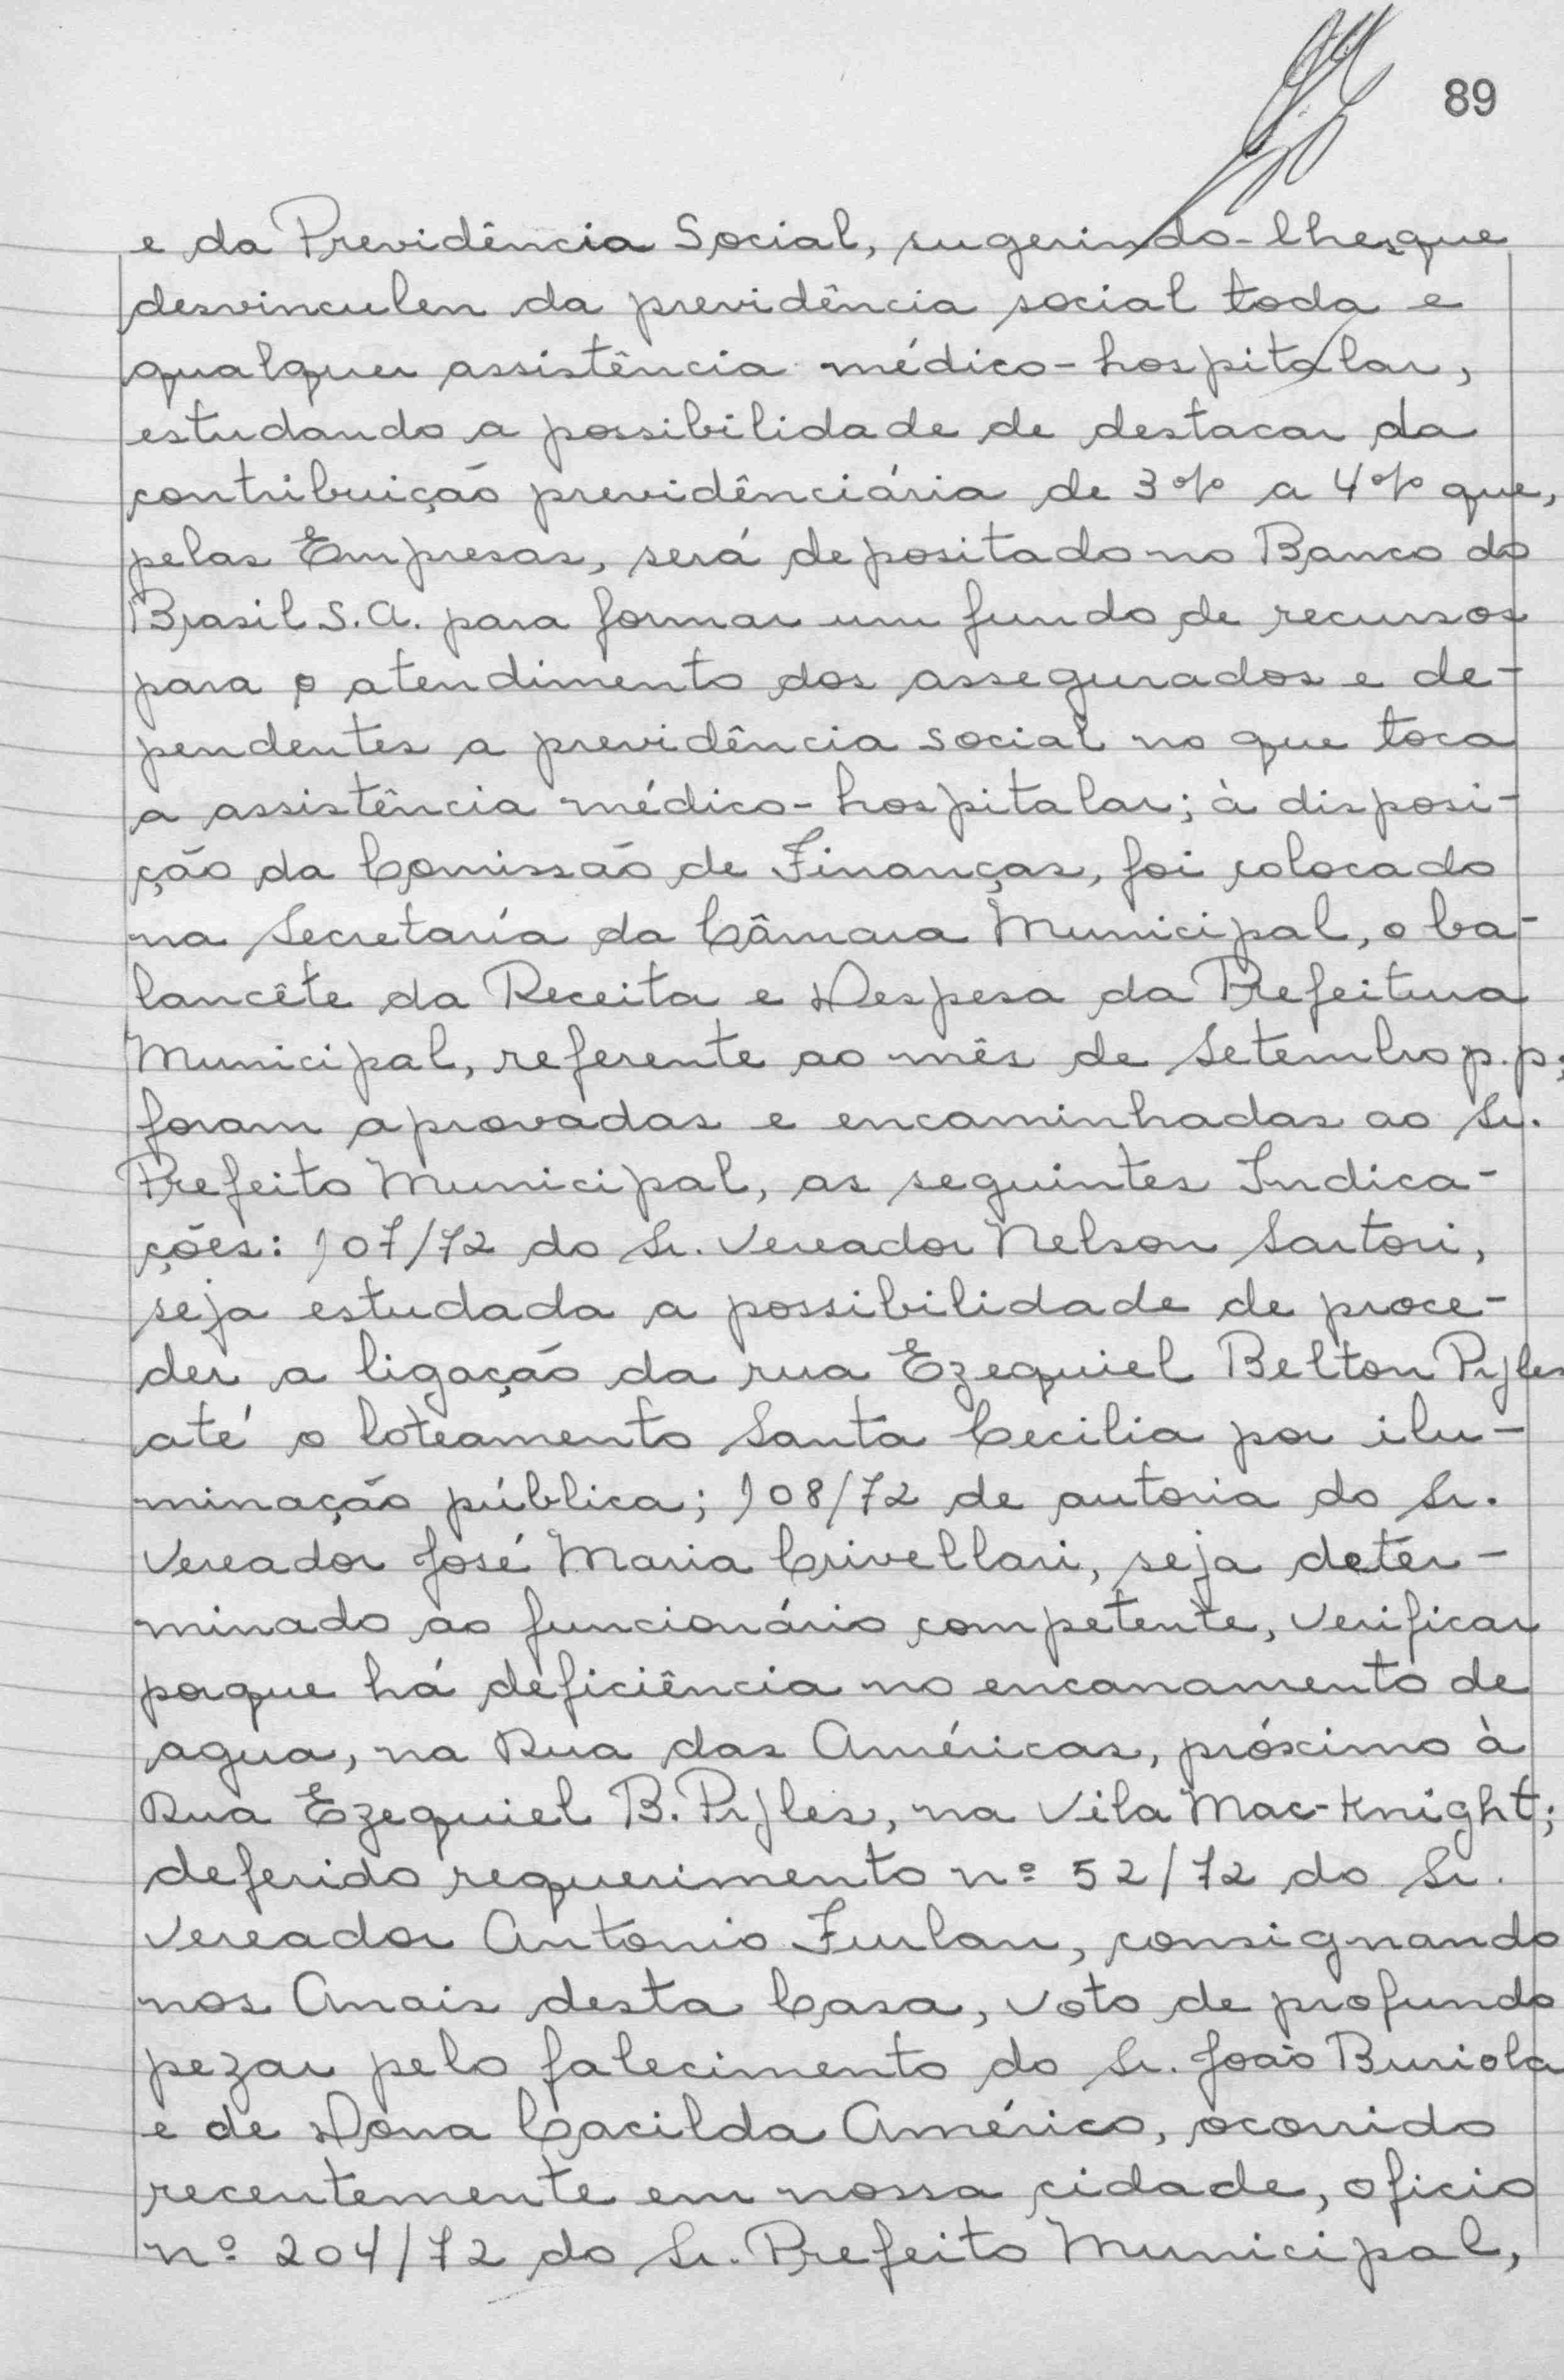 89
e da Previdência Social, sugerindo-lhes que
desvinculem da previdência social toda e
qualquer assistência médico-hospitalar,
estudando a possibilidade de destacar da
contribuição previdênciária de 3% a 4% que,
pelas Empresas, será depositado no Banco do
Brasil S.A. para formar um fundo de recursos
para o atendimento dos assegurados e de-
pendentes a previdência social no que toca
a assistência médico-hospitalar; à disposi-
ção da Comissão de Finanças, foi colocado
na Secretaría da Câmara Municipal, o ba-
lancête da Receita e Despesa da Prefeitura
Municipal, referente ao mês de Setembro p.p;
foram aprovadas e encaminhadas ao Sr.
Prefeito Municipal, as seguintes Indica-
ções: 107/72 do Sr. Vereador Nelson Sartori,
seja estudada a possibilidade de proce-
der a ligação da rua Ezequiel Belton Pyles
até o loteamento Santa Cecilia por ilu-
minação pública; 108/72 de autoria do Sr.
Vereador José Maria Crivellari, seja deter-
minado ao funcionário competente, verificar
porque há deficiência no encanamento de
agua, na Rua das Américas, próximo à
Rua Ezequiel B. Pyles, na Vila Mac-Knight;
deferido requerimento nº 52/72 do Sr.
Vereador Antonio Furlan, consignando
nos Anais desta Casa, voto de profundo
pezar pelo falecimento do Sr. João Buriola
e de Dona Cacilda Américo, ocorrido
recentemente em nossa cidade, oficio
nº 204/72 do Sr. Prefeito Municipal,